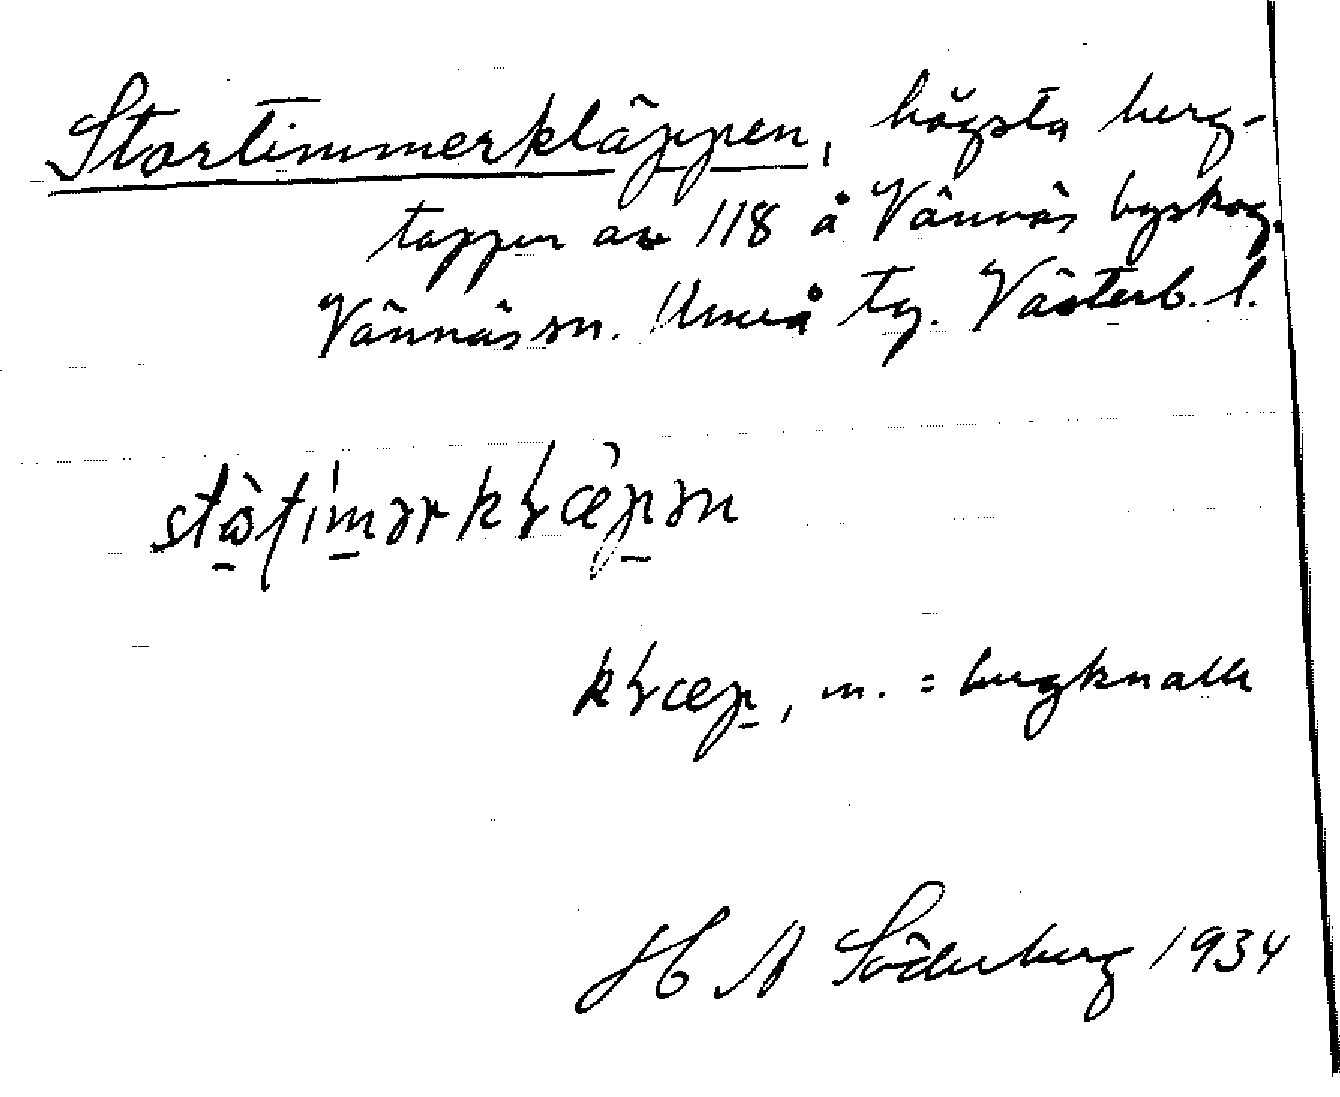 Stortimmerkläppen, högsta berg-
toppen av 118 å Vännäs byskog.
Vännäs sn. Umeå tg. Västerb. l.
m. = bergknalle
H A Söderberg 1934